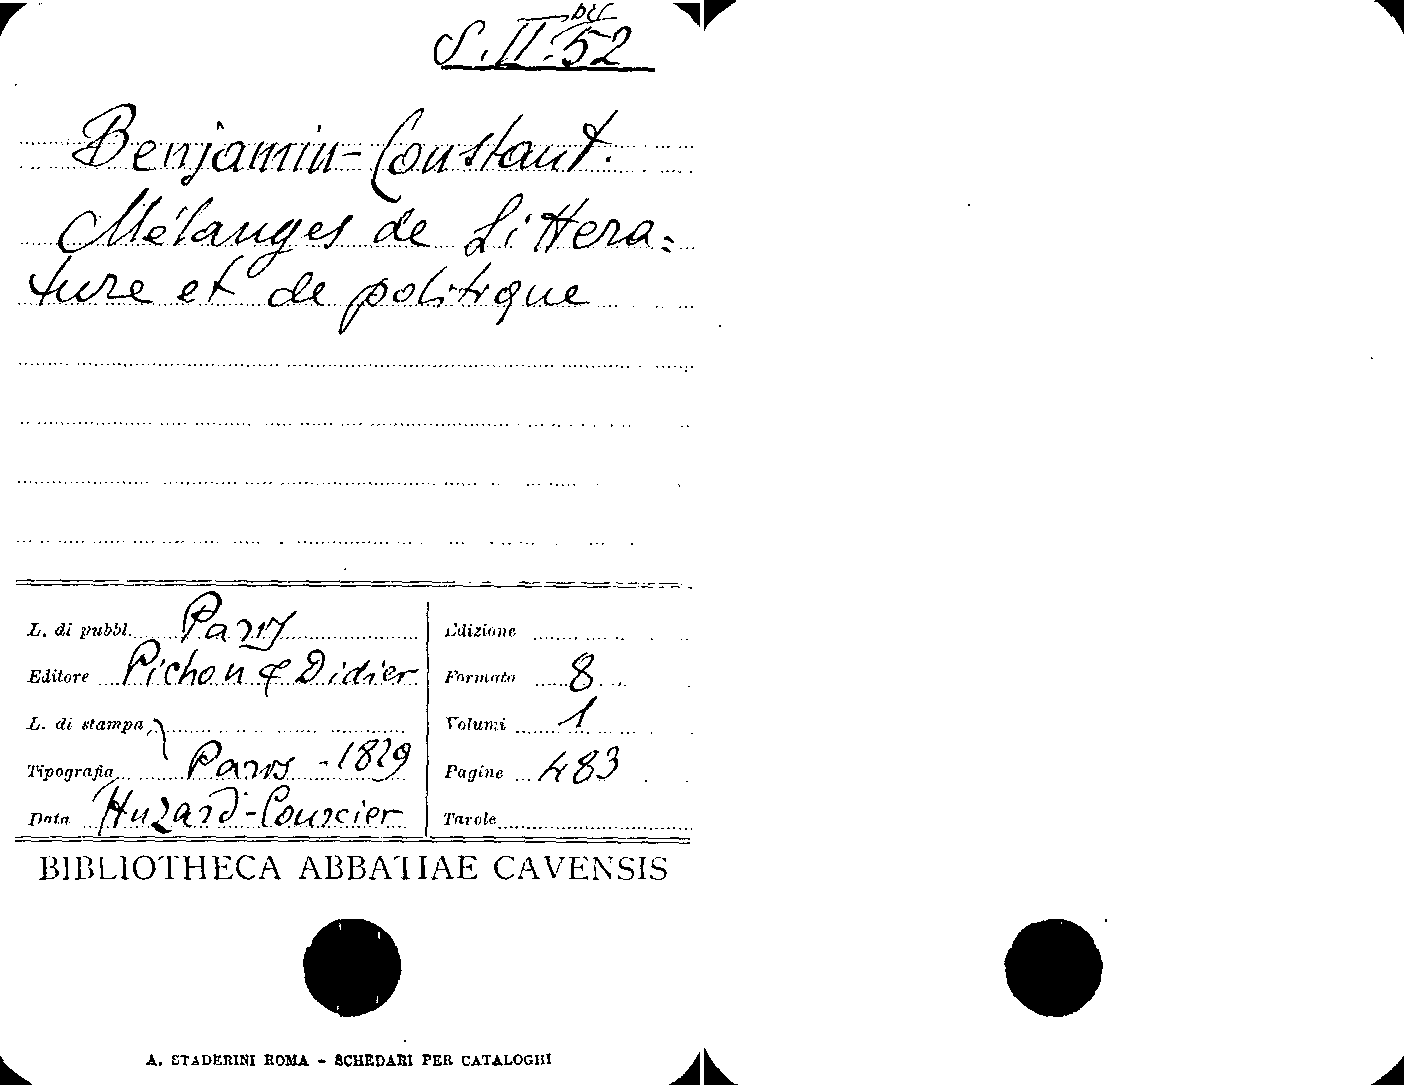 S. II bis. 52
Benjamin-Constant.
Mélanges de Littera=
ture et de politique
L. di pubbl. Paris
Editore Pichon & Didier
L. di stampa
Tipografia Paris - 1829
Data Huzard-Courcier
Edizione
Formato 8
Volumi 1
Pagine 483
Tavole
BIBLIOTHECA ABBATIAE CAVENSIS
A. STADERINI ROMA - SCHEDARI PER CATALOGHI